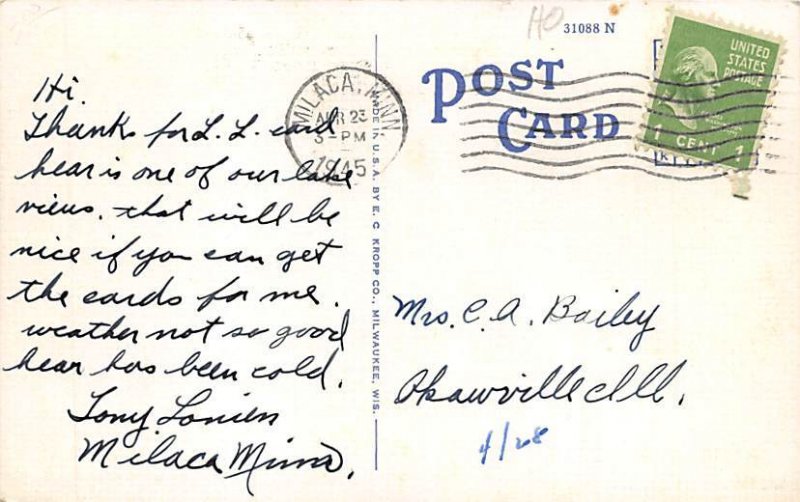 HO
31088 N
POST
CARD
UNITED
STATES
POSTAGE
1 CENT 1
MILACA, MINN
APR 23
3-PM
1945
MADE IN U.S.A. BY E. C. KROPP CO., MILWAUKEE, WIS.
Hi.
Thanks for L. L. card
hear is one of our lake
views. that will be
nice if you can get
the cards for me.
weather not so good
hear has been cold.
Tony
Milaca Minn.
Mrs. C. A. Bailey
Okawville Ill.
4/28